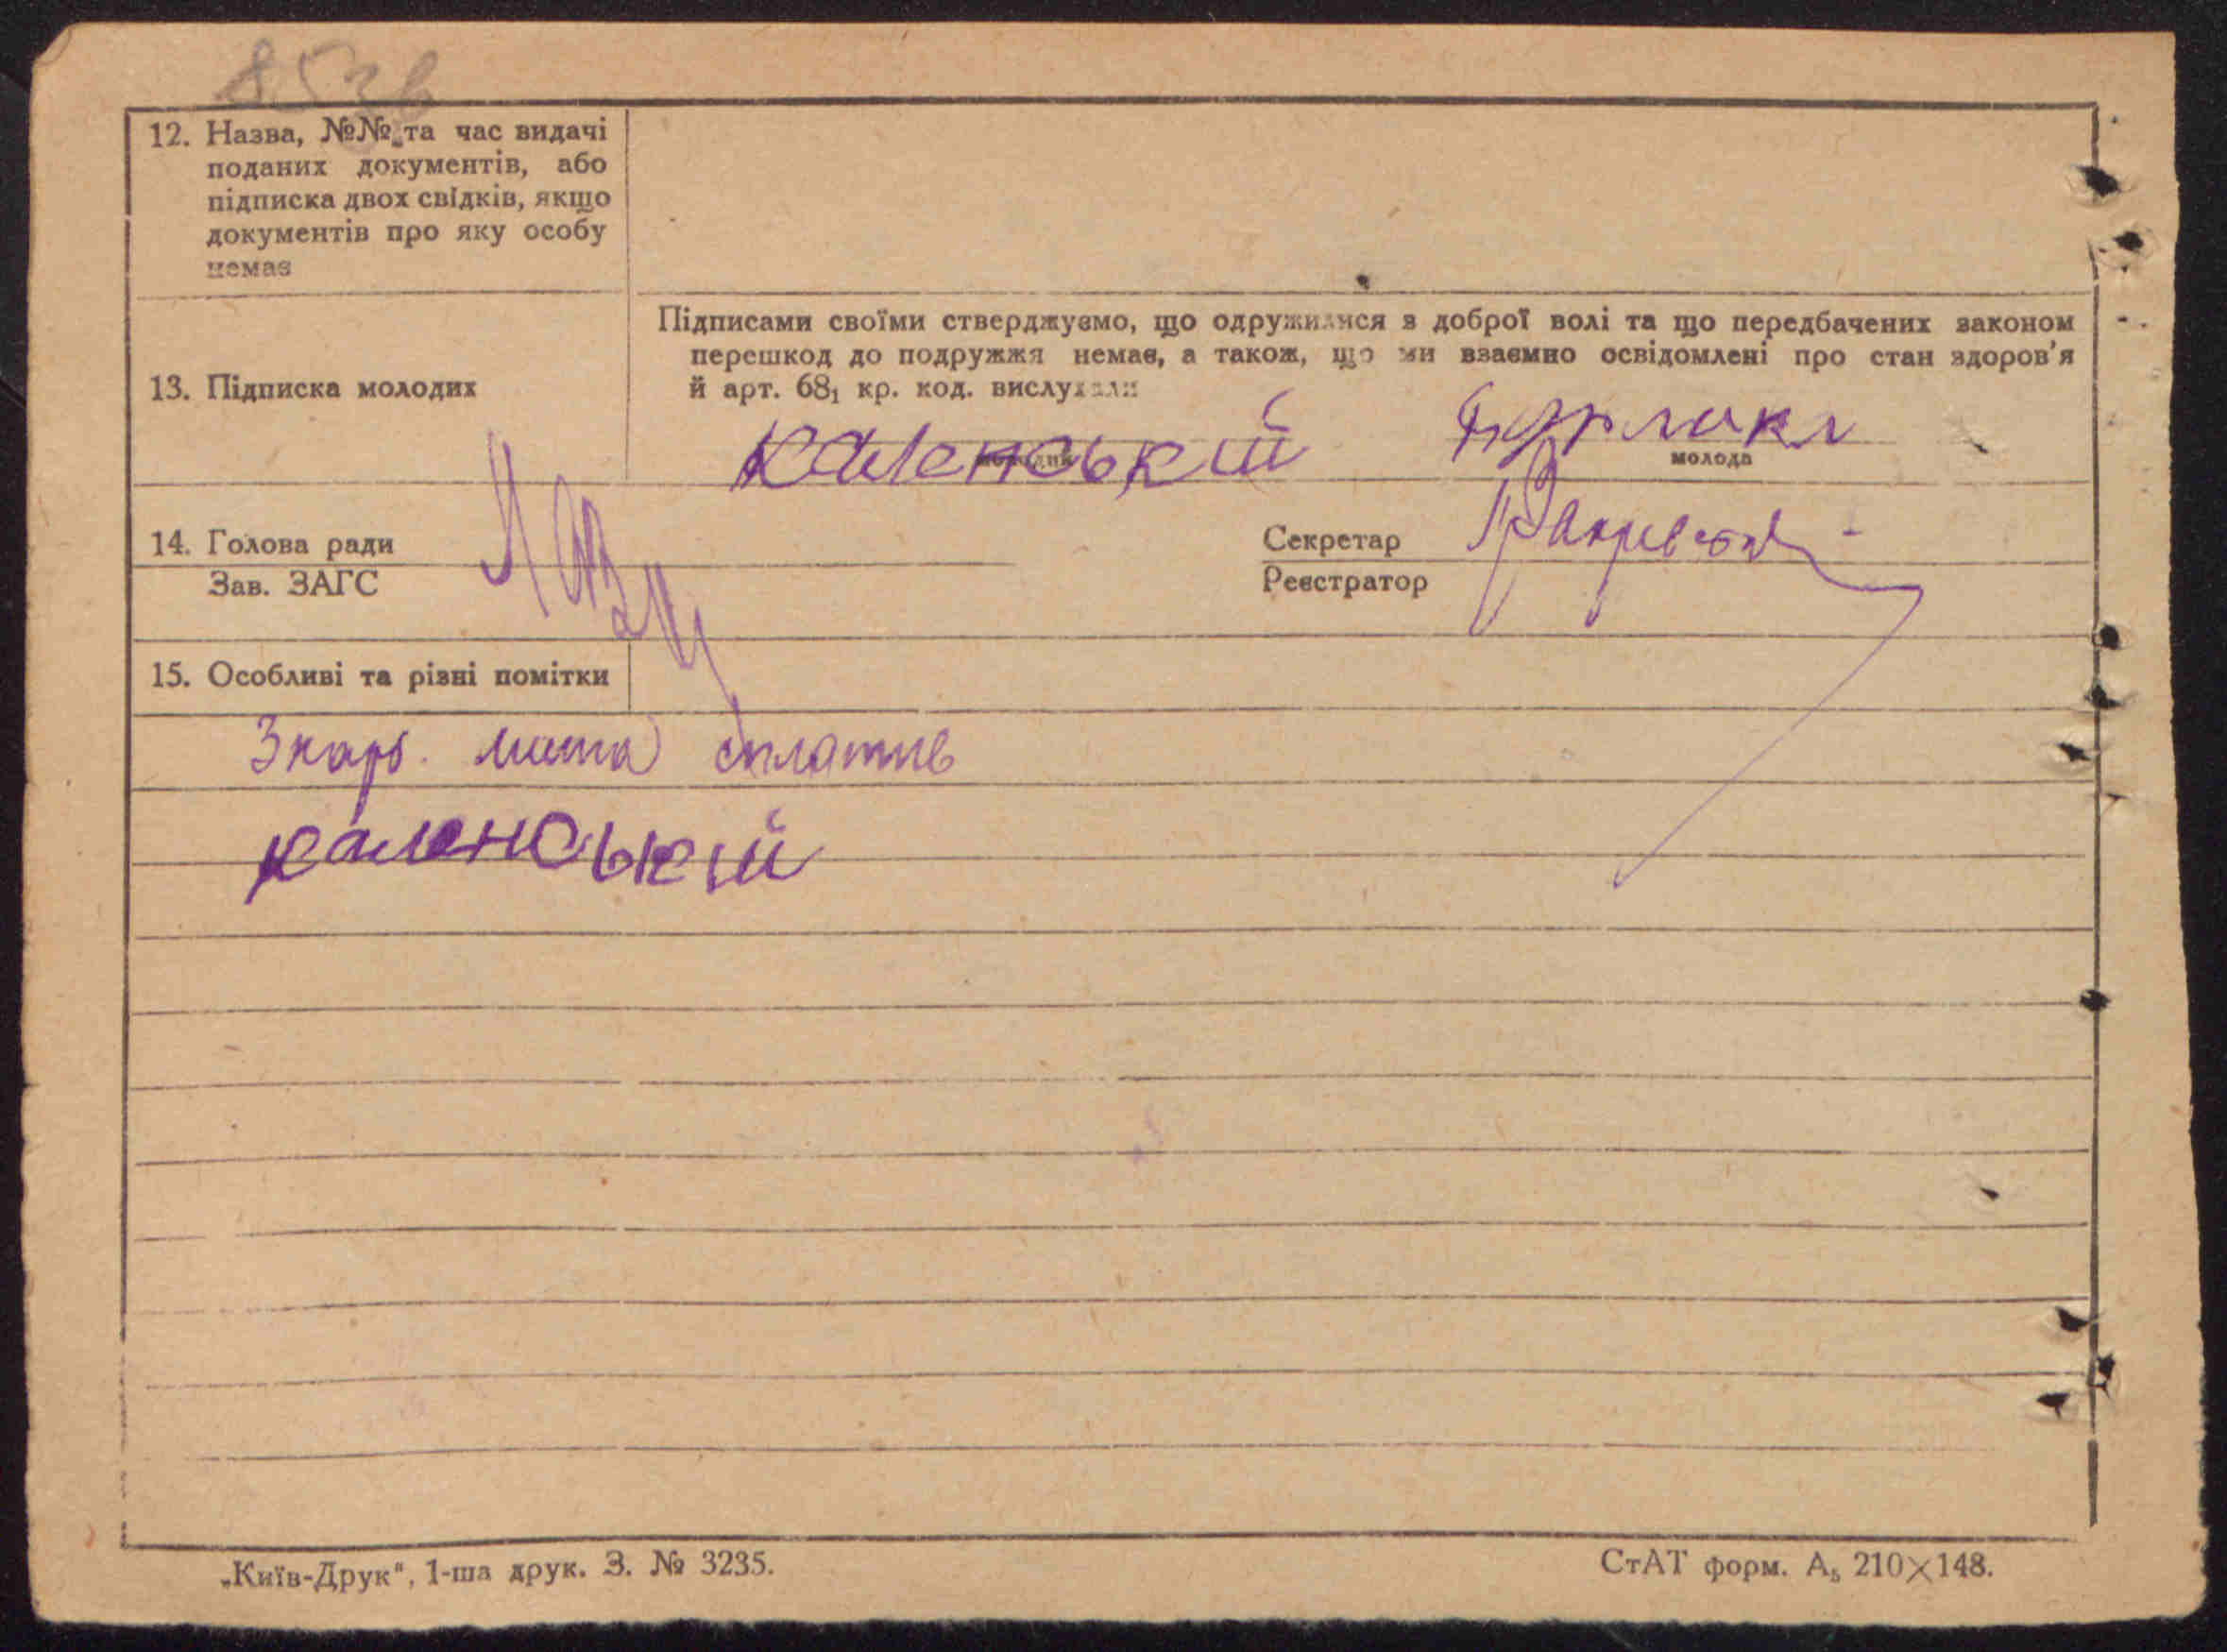 853в
12. Назва, №№ та час видачі
поданих документів, або
підписка двох свідків, якщо
документів про яку особу
немає
13. Підписка молодих
Підписами своїми стверджуємо, що одружилися з доброї волі та що передбачених законом
перешкод до подружжя немає, а також, що ми взаємно освідомлені про стан здоров'я
й арт. 68₁ кр. код. вислухали
Каленський
молодий
молода
14. Голова ради
Зав. ЗАГС
Секретар
Реєстратор
15. Особливі та різні помітки
Зкарб. мита сплатив
Каленський
„Київ-Друк", 1-ша друк. З. № 3235.
СтАТ форм. А₅ 210×148.